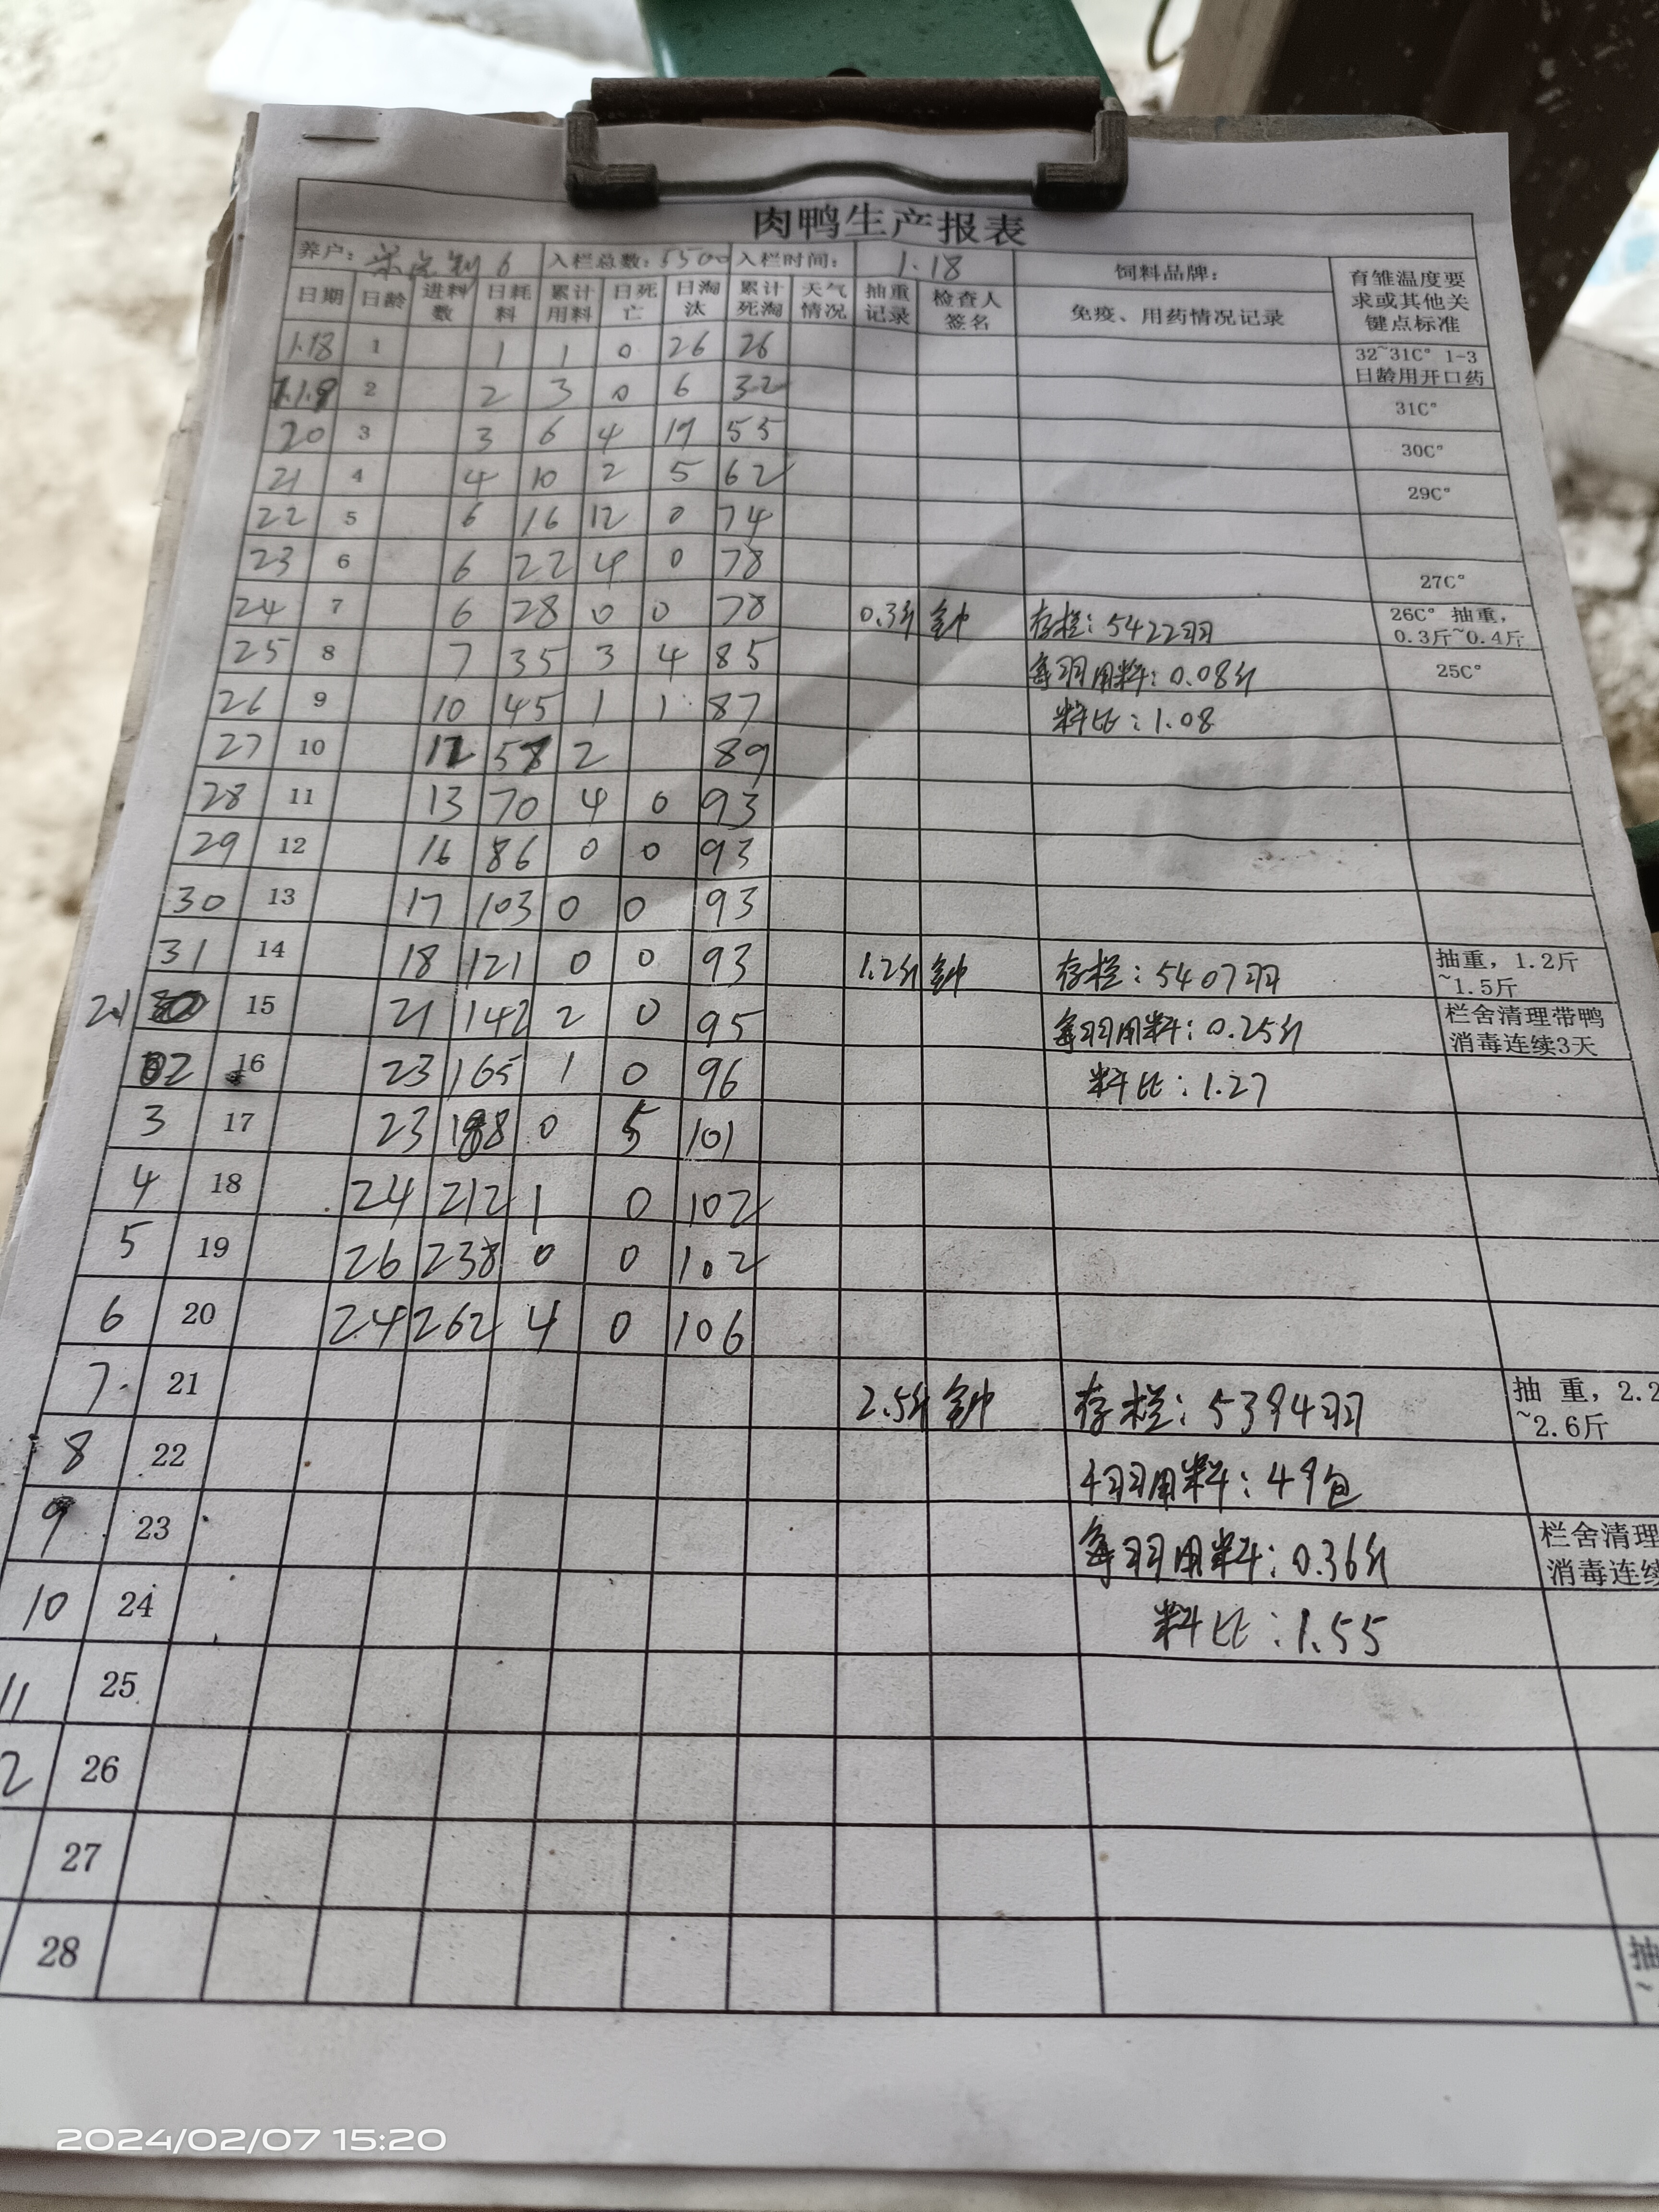 肉鸭生产报表
养户: 6 入栏总数: 5500 入栏时间: 1.18 饲料品牌: 育雏温度要求或其他关键点标准
日期 日龄 进料数 日耗料 累计用料 日死亡 日淘汰 累计死淘 天气情况 抽重记录 检查人签名 免疫、用药情况记录
1.18 1 1 1 0 26 26 32~31C° 1-3日龄用开口药
1.19 2 2 3 0 6 32 31C°
20 3 3 6 4 19 55 30C°
21 4 4 10 2 5 62 29C°
22 5 6 16 12 0 74
23 6 6 22 4 0 78 27C°
24 7 6 28 0 0 78 0.3斤 钟 存栏: 5422羽 26C° 抽重, 0.3斤~0.4斤
25 8 7 35 3 4 85 每羽用料: 0.08斤 25C°
26 9 10 45 1 1 87 料比: 1.08
27 10 12 57 2 89
28 11 13 70 4 0 93
29 12 16 86 0 0 93
30 13 17 103 0 0 93
31 14 18 121 0 0 93 1.2斤 钟 存栏: 5407羽 抽重, 1.2斤~1.5斤
2.1 15 21 142 2 0 95 每羽用料: 0.25斤 栏舍清理带鸭消毒连续3天
02 16 23 165 1 0 96 料比: 1.27
3 17 23 188 0 5 101
4 18 24 212 1 0 102
5 19 26 238 0 0 102
6 20 24 262 4 0 106
7 21 2.5斤 钟 存栏: 5394羽 抽 重, 2.2~2.6斤
8 22 4羽用料: 49包
9 23 每羽用料: 0.36斤 栏舍清理 消毒连续
10 24 料比: 1.55
11 25
2 26
27
28 抽 ~
2024/02/07 15:20